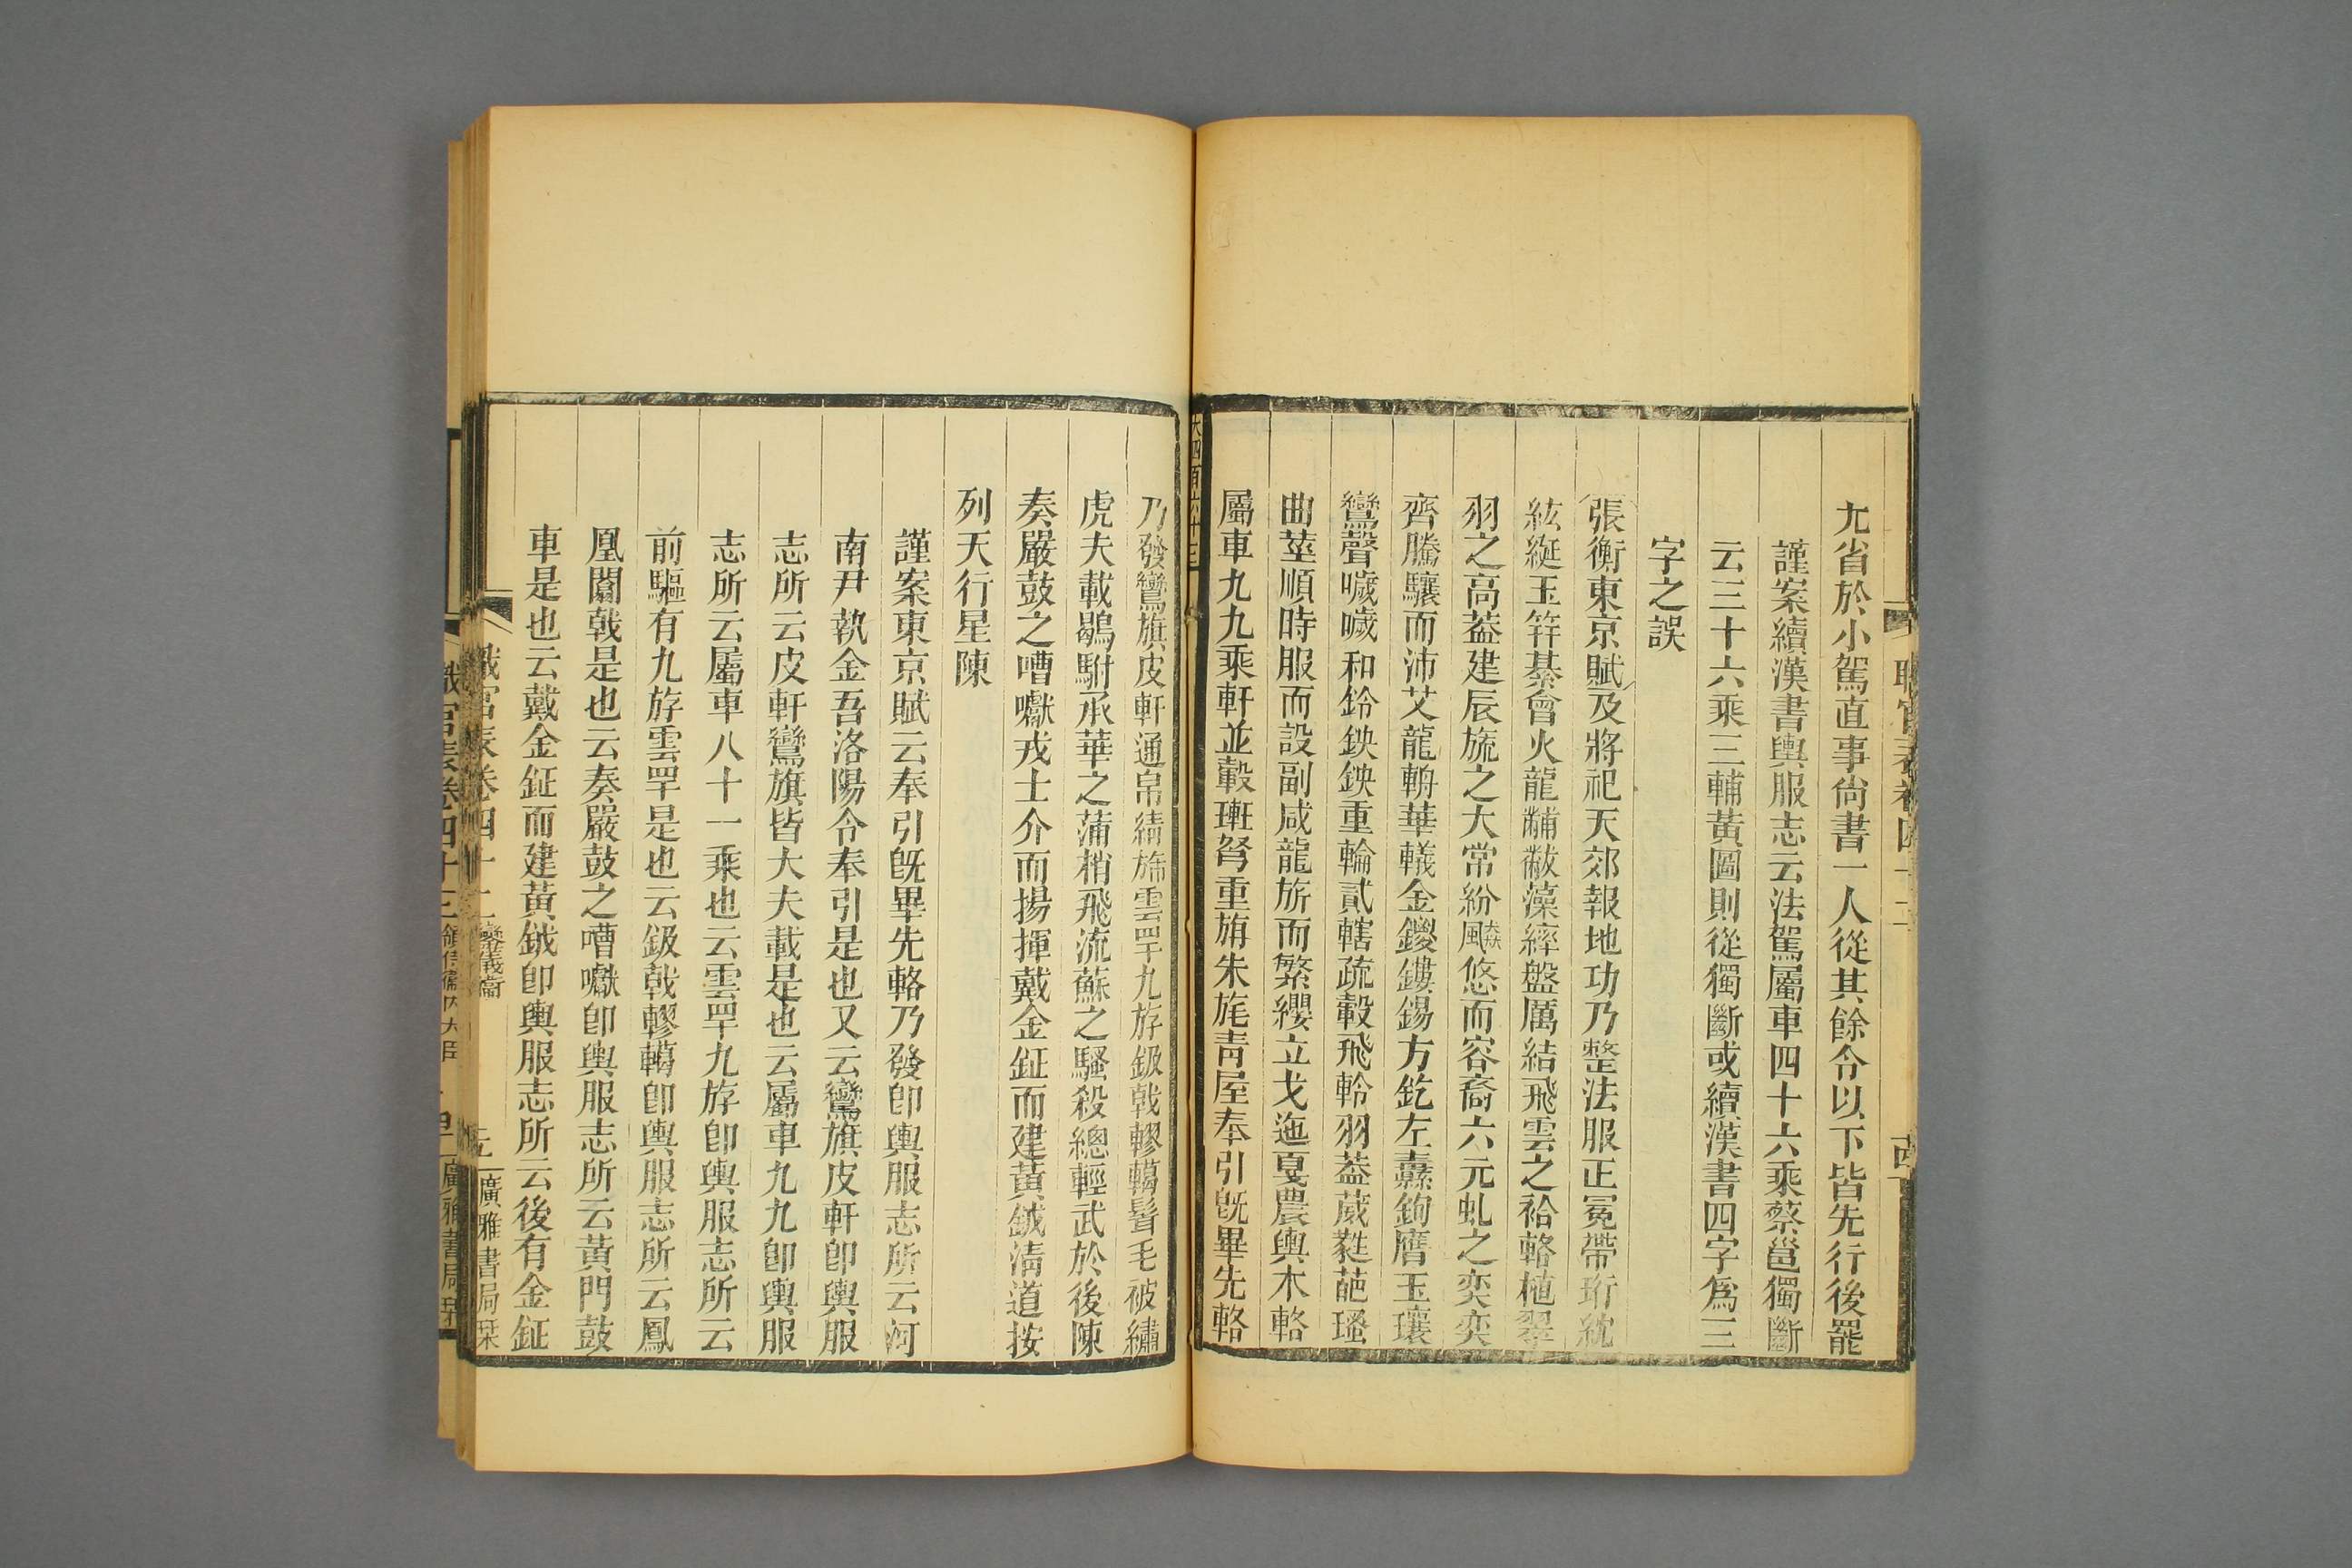 尢省於小駕直事尙書一人從其餘令以下皆先行後罷
謹案續漢書輿服志云法駕屬車四十六乘蔡邕獨斷
云三十六乘三輔黃圖則從獨斷或續漢書四字爲三
字之誤
張衡東京賦及將祀天郊報地功乃整法服正冕帶珩紞
紘綖玉笄綦會火龍黼黻藻繂鞶厲結飛雲之袷輅植翠
羽之高葢建辰旒之大常紛焱悠而容裔六元虬之奕奕
齊騰驤而沛艾龍輈華轙金鍐鏤鍚方釳左纛鉤膺玉瓖
鸞聲噦噦和鈴鉠鉠重輪貳轄疏轂飛軨羽葢葳蕤葩瑵
曲莖順時服而設副咸龍旂而繁纓立戈迤戛農輿木輅
屬車九九乘軒並轂𤥭弩重旃朱旄靑屋奉引旣畢先輅
大四百六十三
乃發鸞旗皮軒通帛綪旆雲罕九斿鈒戟轇輵髶髦被繡
虎夫載鶡駙承華之蒲梢飛流蘇之騷殺總輕武於後陳
奏嚴鼓之嘈囐戎士介而揚揮戴金鉦而建黃鉞淸道按
列天行星陳
謹案東京賦云奉引旣畢先輅乃發卽輿服志所云河
南尹執金吾洛陽令奉引是也又云鸞旗皮軒卽輿服
志所云皮軒鸞旗皆大夫載是也云屬車九九卽輿服
志所云屬車八十一乘也云雲罕九斿卽輿服志所云
前驅有九斿雲罕是也云鈒戟轇輵卽輿服志所云鳳
凰闟戟是也云奏嚴鼓之嘈囐卽輿服志所云黃門鼓
車是也云戴金鉦而建黃鉞卽輿服志所云後有金鉦
職官表卷四十二 鑾儀衞 廣雅書局栞
職官表卷四十三 領侍衞內大臣 廣雅書局栞